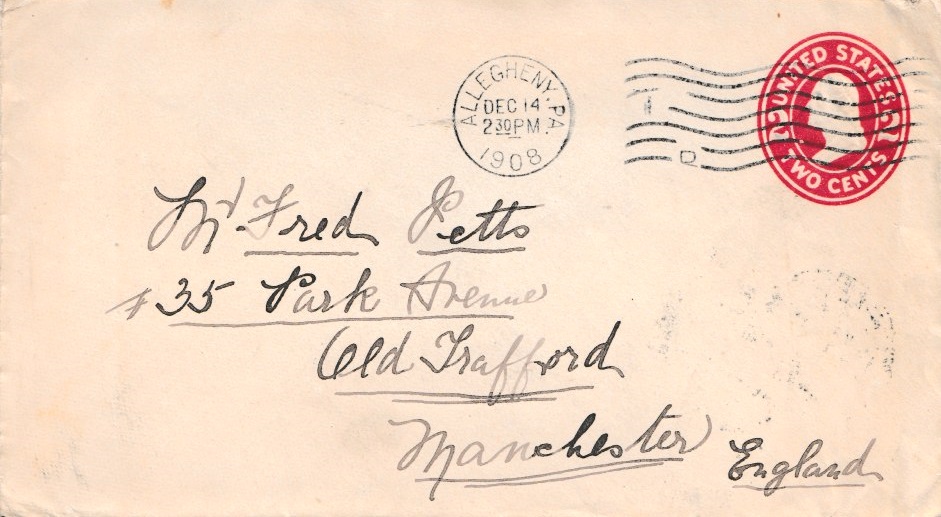 UNITED STATES
TWO CENTS
ALLEGHENY, PA.
DEC 14
2 30 PM
1908
1
D
Mr Fred Petts
# 35 Park Avenue
Old Trafford
Manchester
England